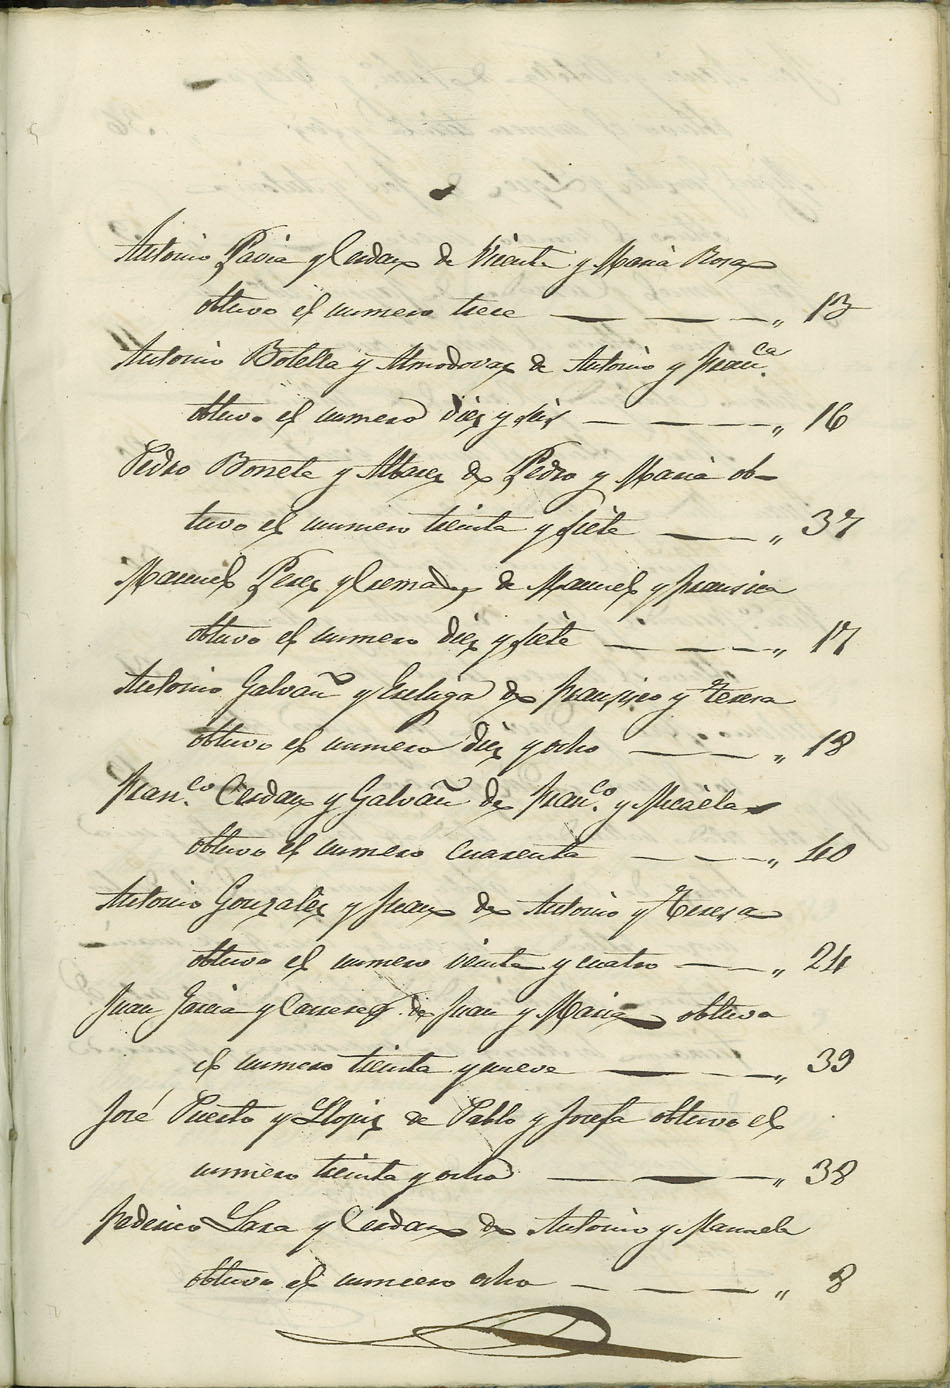 Antonio Pavia y Cerdan de Vicente y Maria Rosa
obtuvo el numero trece — — — „ 13
Antonio Botella y Almodovar de Antonio y Fran.ca
obtuvo el numero diez y seis — — — „ 16
Pedro Bonete y Albarez de Pedro y Maria ob-
tuvo el numero treinta y siete — — „ 37
Manuel Perez y Cremades de Manuel y Fransisca
obtuvo el numero diez y siete — — — „ 17
Antonio Galvañ y de Fransisco y Teresa
obtuvo el numero diez y ocho — — „ 18
Fran.co Cerdan y Galvañ de Fran.co y Micaela
obtuvo el numero cuarenta — — — „ 40
Antonio Gonzalez y Juan de Antonio y Teresa
obtuvo el numero veinte y cuatro — — „ 24
Juan Garcia y de Juan y Maria obtuvo
el numero treinta y nueve — — — „ 39
José Puerto y Llopiz de Pablo y Josefa obtuvo el
numero treinta y ocho — — — „ 38
Federico Lara y Cerdan de Antonio y Manuela
obtuvo el numero ocho — — — — „ 8